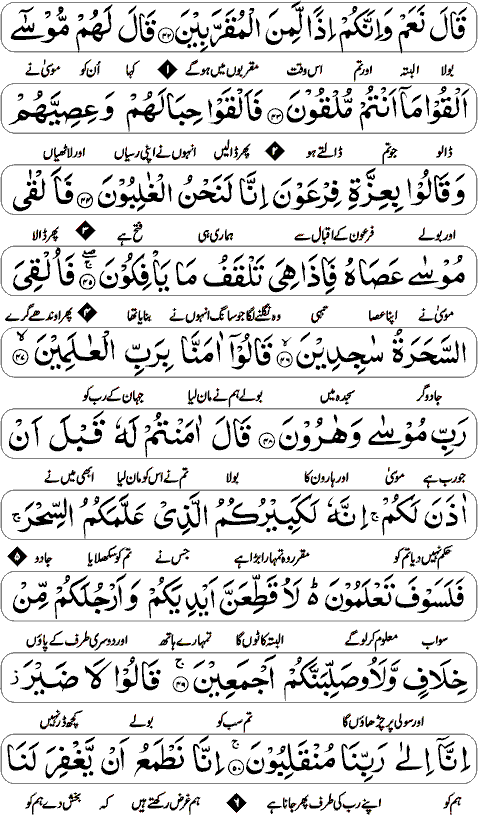 قَالَ نَعَمْ وَاِنَّكُمْ اِذًا لَّمِنَ الْمُقَرَّبِيْنَ ﴿۴۲﴾ قَالَ لَهُمْ مُّوْسٰۤى
بولا البتہ اور تم اس وقت مقربوں میں ہو گے ۱ کہا اُن کو موسیٰ نے
اَلْقُوْا مَاۤ اَنْتُمْ مُّلْقُوْنَ ﴿۴۳﴾ فَاَلْقَوْا حِبَالَهُمْ وَعِصِيَّهُمْ
ڈالو جو تم ڈالتے ہو ۲ پھر ڈالیں انہوں نے اپنی رسیاں اور لاٹھیاں
وَقَالُوْا بِعِزَّةِ فِرْعَوْنَ اِنَّا لَنَحْنُ الْغٰلِبُوْنَ ﴿۴۴﴾ فَاَلْقٰى
اور بولے فرعون کے اقبال سے ہماری ہی فتح ہے ۳ پھر ڈالا
مُوْسٰى عَصَاهُ فَاِذَا هِيَ تَلْقَفُ مَا يَاْفِكُوْنَ ﴿۴۵﴾ فَاُلْقِيَ
موسیٰ نے اپنا عصا تبھی وہ نگلنے لگا جو سانگ انہوں نے بنایا تھا ۴ پھر اوندھے گرے
السَّحَرَةُ سٰجِدِيْنَ ﴿۴۶﴾ قَالُوْۤا اٰمَنَّا بِرَبِّ الْعٰلَمِيْنَ ﴿۴۷﴾
جادوگر سجدہ میں بولے ہم نے مان لیا جہان کے رب کو
رَبِّ مُوْسٰى وَهٰرُوْنَ ﴿۴۸﴾ قَالَ اٰمَنْتُمْ لَهٗ قَبْلَ اَنْ
جو رب ہے موسیٰ اور ہارون کا بولا تم نے اس کو مان لیا ابھی میں نے
اٰذَنَ لَكُمْ ۚ اِنَّهٗ لَكَبِيْرُكُمُ الَّذِيْ عَلَّمَكُمُ السِّحْرَ ۚ
حکم نہیں دیا تم کو مقرر وہ تمہارا بڑا ہے جس نے تم کو سکھلایا جادو ۵
فَلَسَوْفَ تَعْلَمُوْنَ ؕ لَاُقَطِّعَنَّ اَيْدِيَكُمْ وَاَرْجُلَكُمْ مِّنْ
سو اب معلوم کر لو گے البتہ کاٹوں گا تمہارے ہاتھ اور دوسری طرف کے پاؤں
خِلَافٍ وَّلَاُوصَلِّبَنَّكُمْ اَجْمَعِيْنَ ﴿۴۹﴾ قَالُوْا لَا ضَيْرَ ز
اور سولی پر چڑھاؤں گا تم سب کو بولے کچھ ڈر نہیں
اِنَّاۤ اِلٰى رَبِّنَا مُنْقَلِبُوْنَ ﴿۵۰﴾ اِنَّا نَطْمَعُ اَنْ يَّغْفِرَ لَنَا
ہم کو اپنے رب کی طرف پھر جانا ہے ۶ ہم غرض رکھتے ہیں کہ بخش دے ہم کو